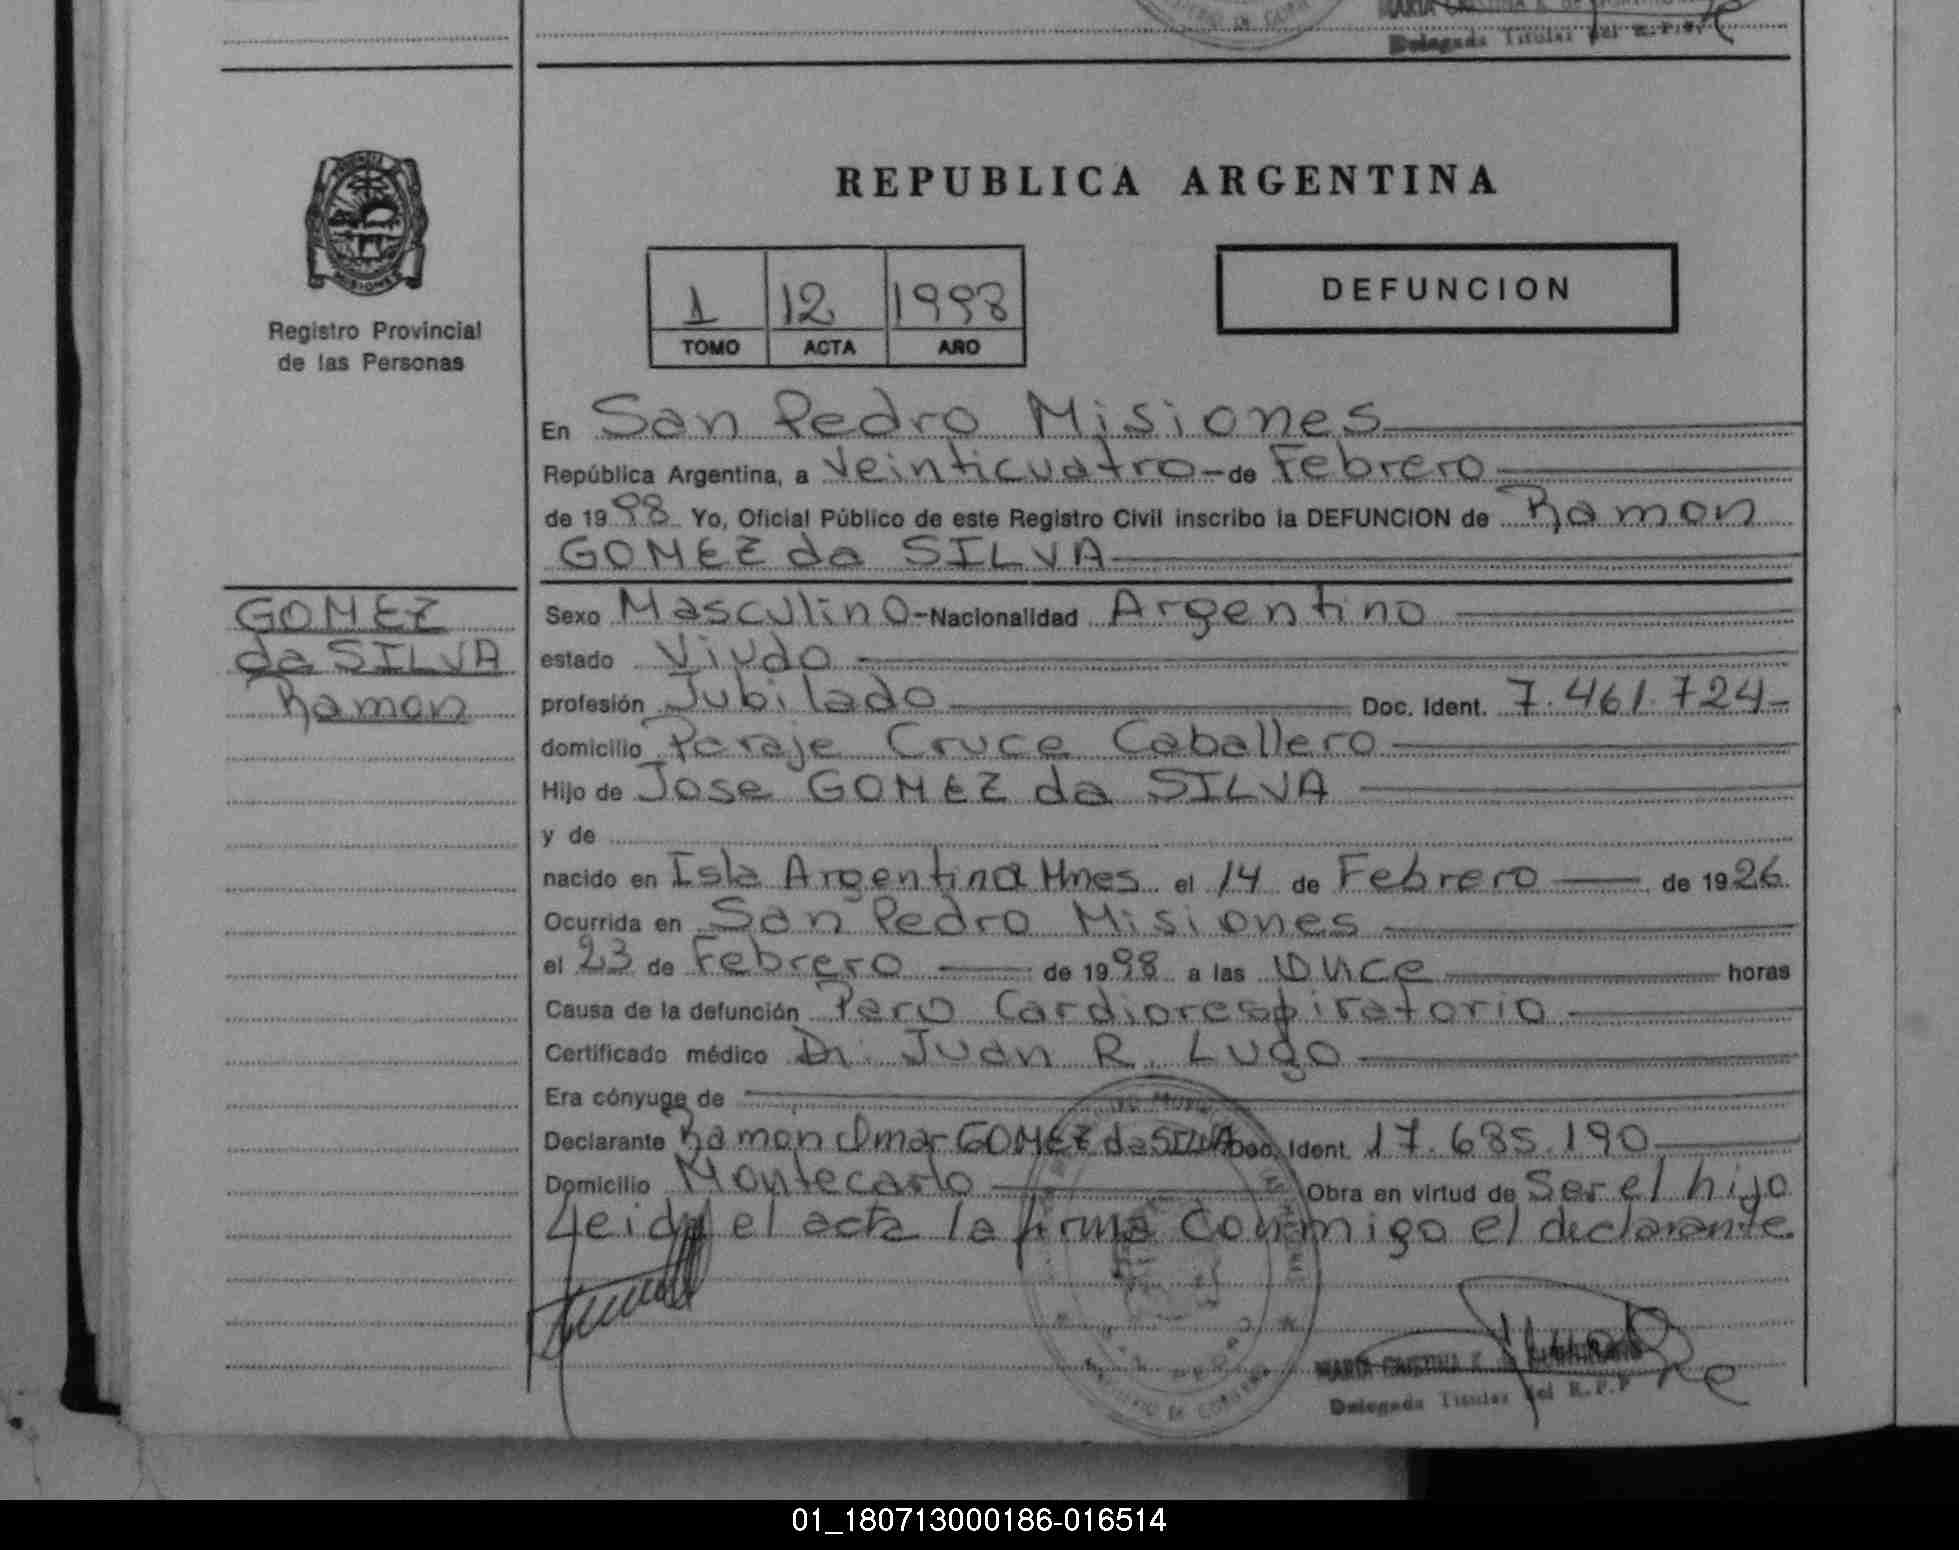 Delegada Titular del R.P.P.
REPUBLICA ARGENTINA
DEFUNCION
1 12 1998
TOMO ACTA AÑO
MISIONES
Registro Provincial
de las Personas
En San Pedro Misiones
República Argentina, a Veinticuatro - de Febrero
de 1998 Yo, Oficial Público de este Registro Civil inscribo la DEFUNCION de Ramon
GOMEZ da SILVA
GOMEZ
da SILVA
Ramon
Sexo Masculino - Nacionalidad Argentino
estado Viudo
profesión Jubilado Doc. Ident. 7.461.724
domicilio Paraje Cruce Caballero
Hijo de Jose GOMEZ da SILVA
y de
nacido en Isla Argentina Mnes el 14 de Febrero de 1926
Ocurrida en San Pedro Misiones
el 23 de Febrero de 1998 a las Once horas
Causa de la defunción Paro Cardiorespiratorio
Certificado médico Dr. Juan R. Lugo
Era cónyuge de
Declarante Ramon Omar GOMEZ da SILVA Doc. Ident. 17.685.190
Domicilio Montecarlo Obra en virtud de Ser el hijo
Leida el acta la firma Conmigo el declarante
MARIA CRISTINA K. de
Delegada Titular del R.P.P
01_180713000186-016514